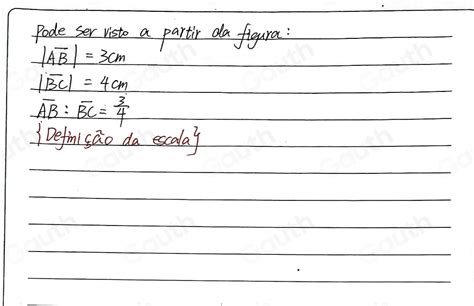 Pode ser visto a partir da figura:
|A͞B| = 3cm
|B͞C| = 4cm
A͞B : B͞C = 3/4
{Definição da escala}
Gauth